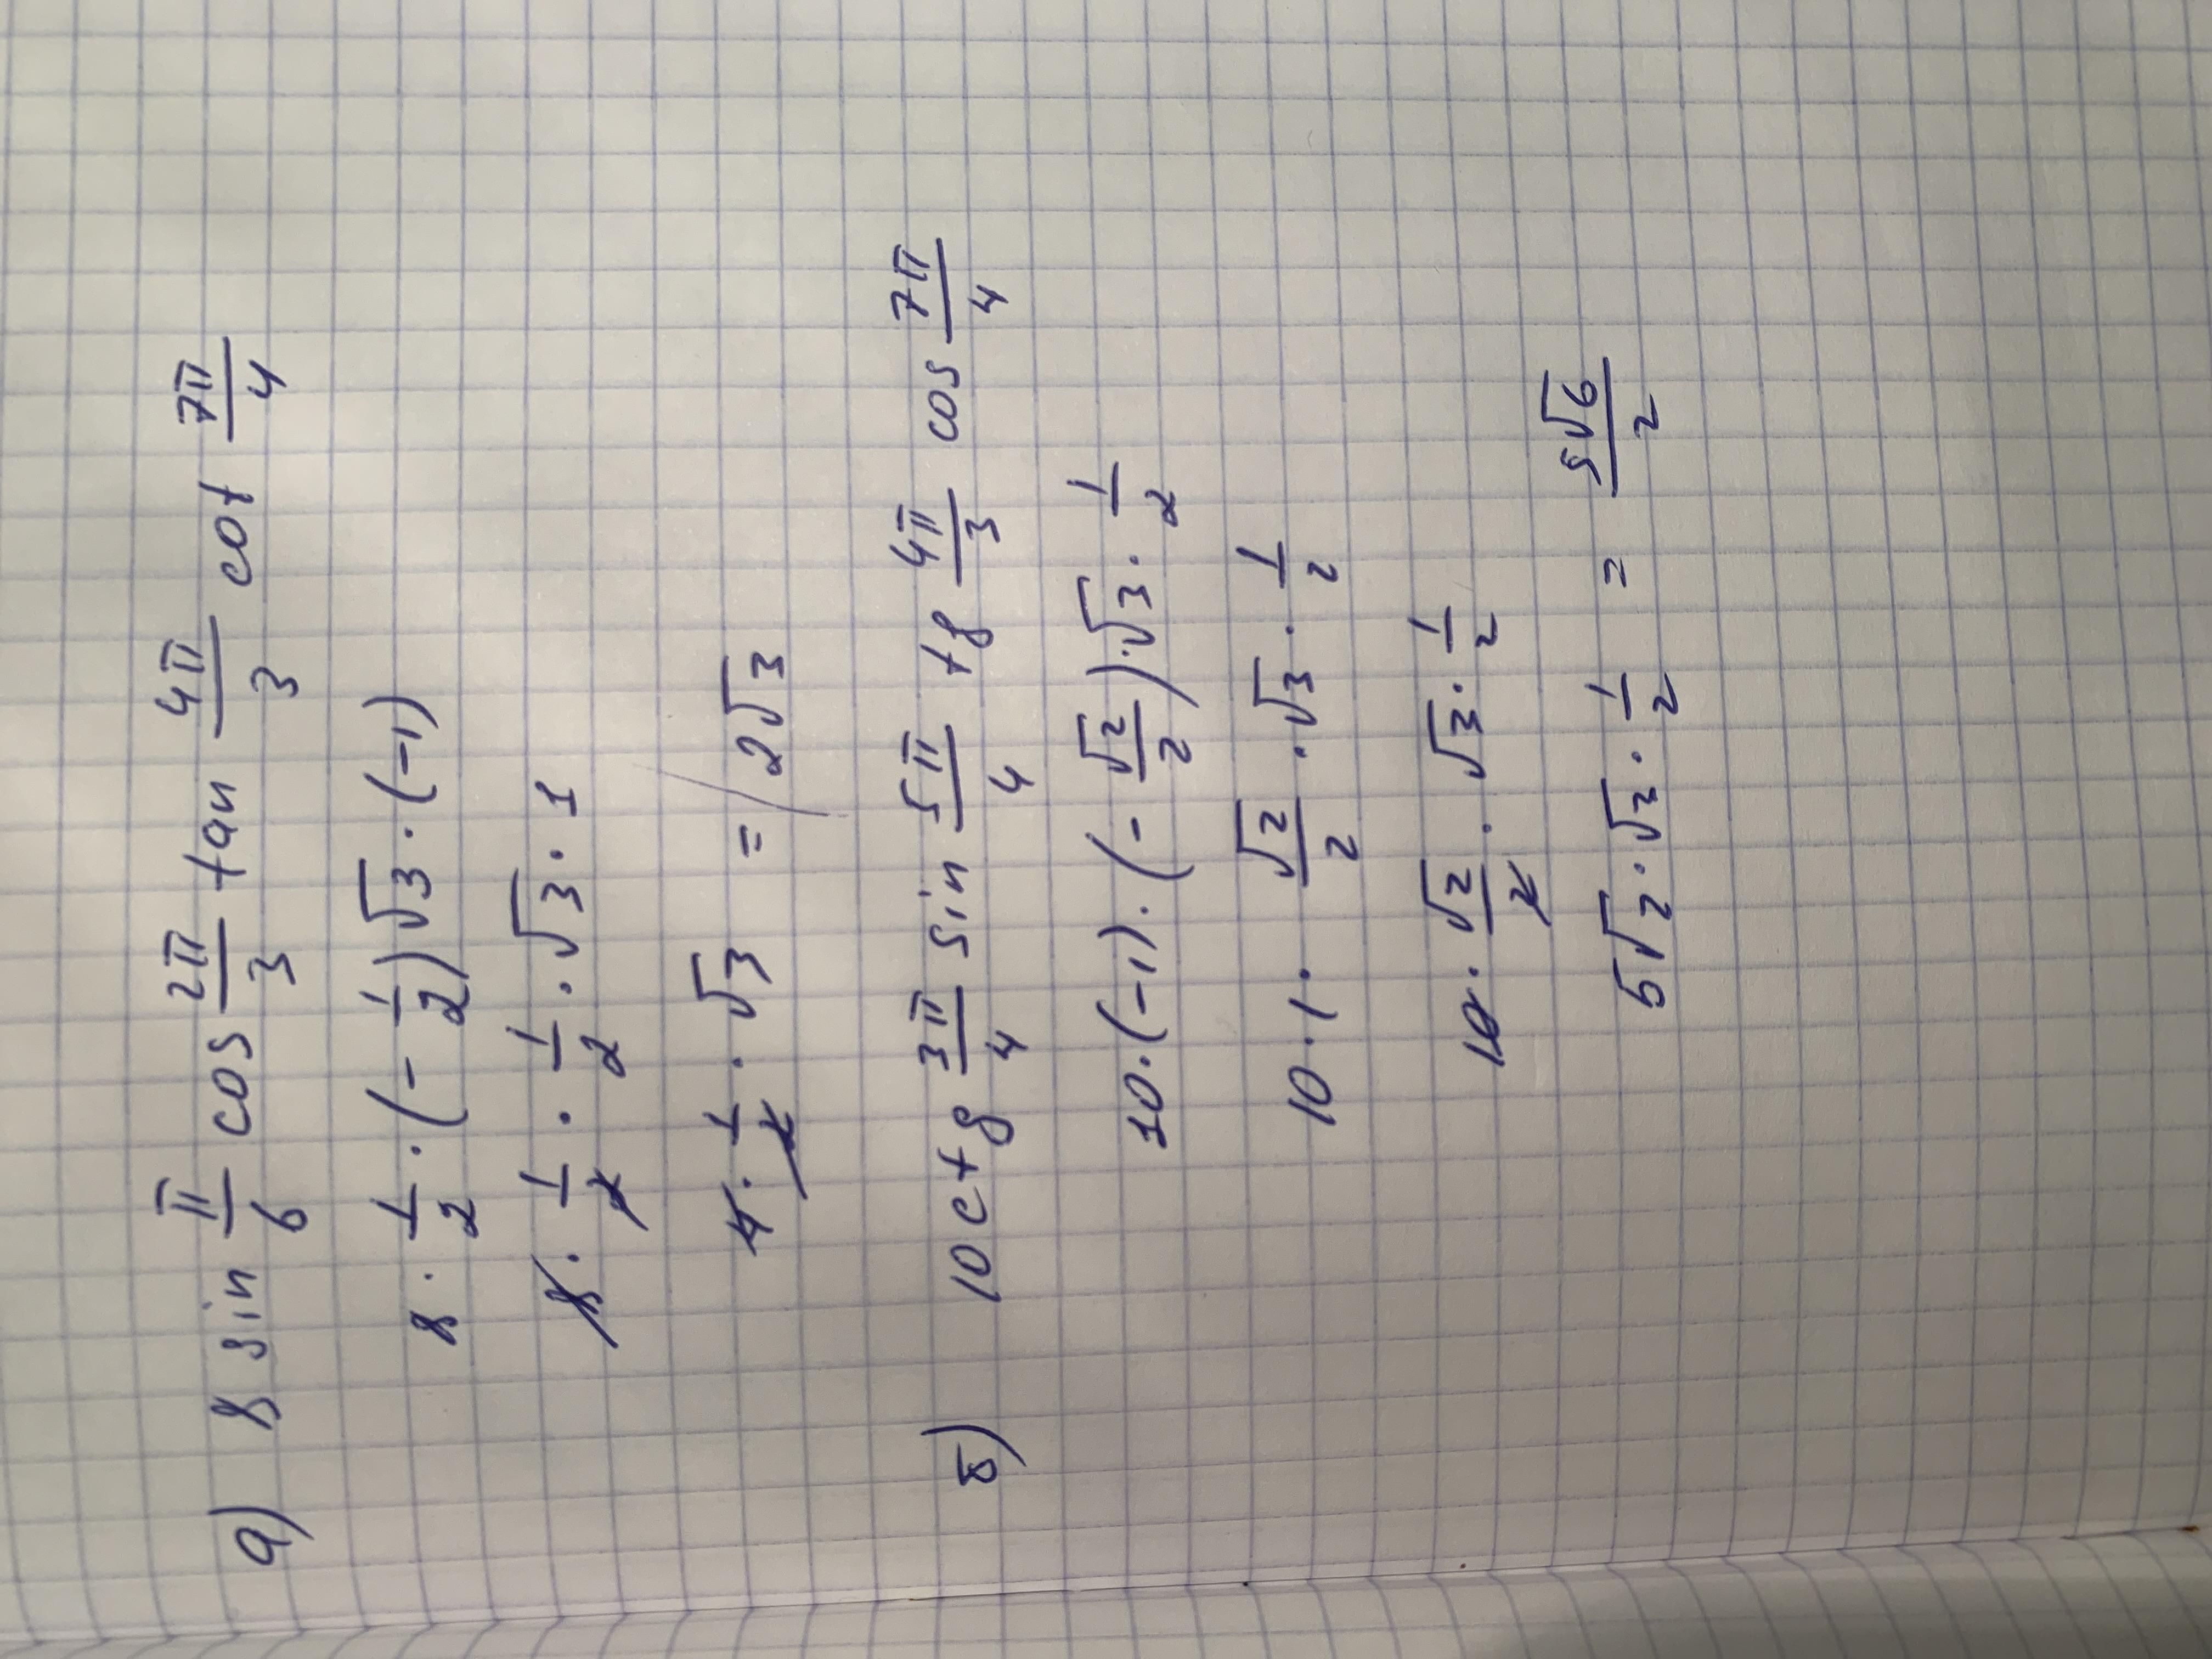 а) 8 sin π/6 cos 2π/3 tan 4π/3 cot 7π/4
8 · 1/2 · (- 1/2) √3 · (-1)
8 · 1/2 · 1/2 · √3 · 1
4 · 1/2 · √3 = 2√3
б) 10 ctg 3π/4 sin 5π/4 tg 4π/3 cos 7π/4
10 · (-1) · (- √2/2) · √3 · 1/2
10 · 1 · √2/2 · √3 · 1/2
10 · √2/2 · √3 · 1/2
5√2 · √3 · 1/2 = 5√6/2